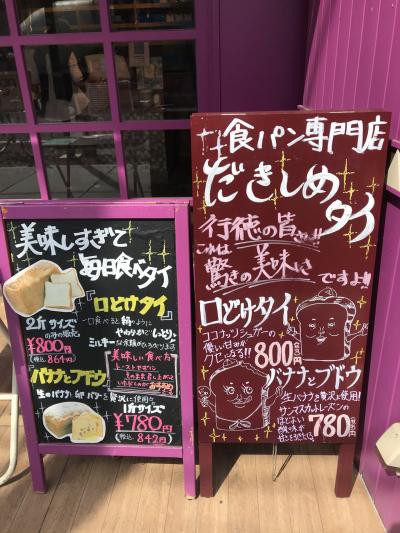 美味しすぎて
毎日食べタイ
『口どけタイ』
2斤サイズ
のみの販売
¥800
(税込.864円)
一口食べると絹のように
やわらかでしっとり。
ミルキーな
美味しい食べ方
トーストせずに
そのまま召し上がって
いただくのが
バナナとブドウ
生のバナナと卵バターを贅沢に使用
1斤サイズ
¥780
(税込.842円)
食パン専門店
だきしめ
タイ
行徳の皆さま!!
これは
驚きの美味しさですよ!!
口どけタイ
ココナッツシュガーの
優しい甘みが
クセになる!!
800円
バナナとブドウ
生バナナを贅沢に使用!
サンマスカットレーズンの
ほどよい
酸味が
780円